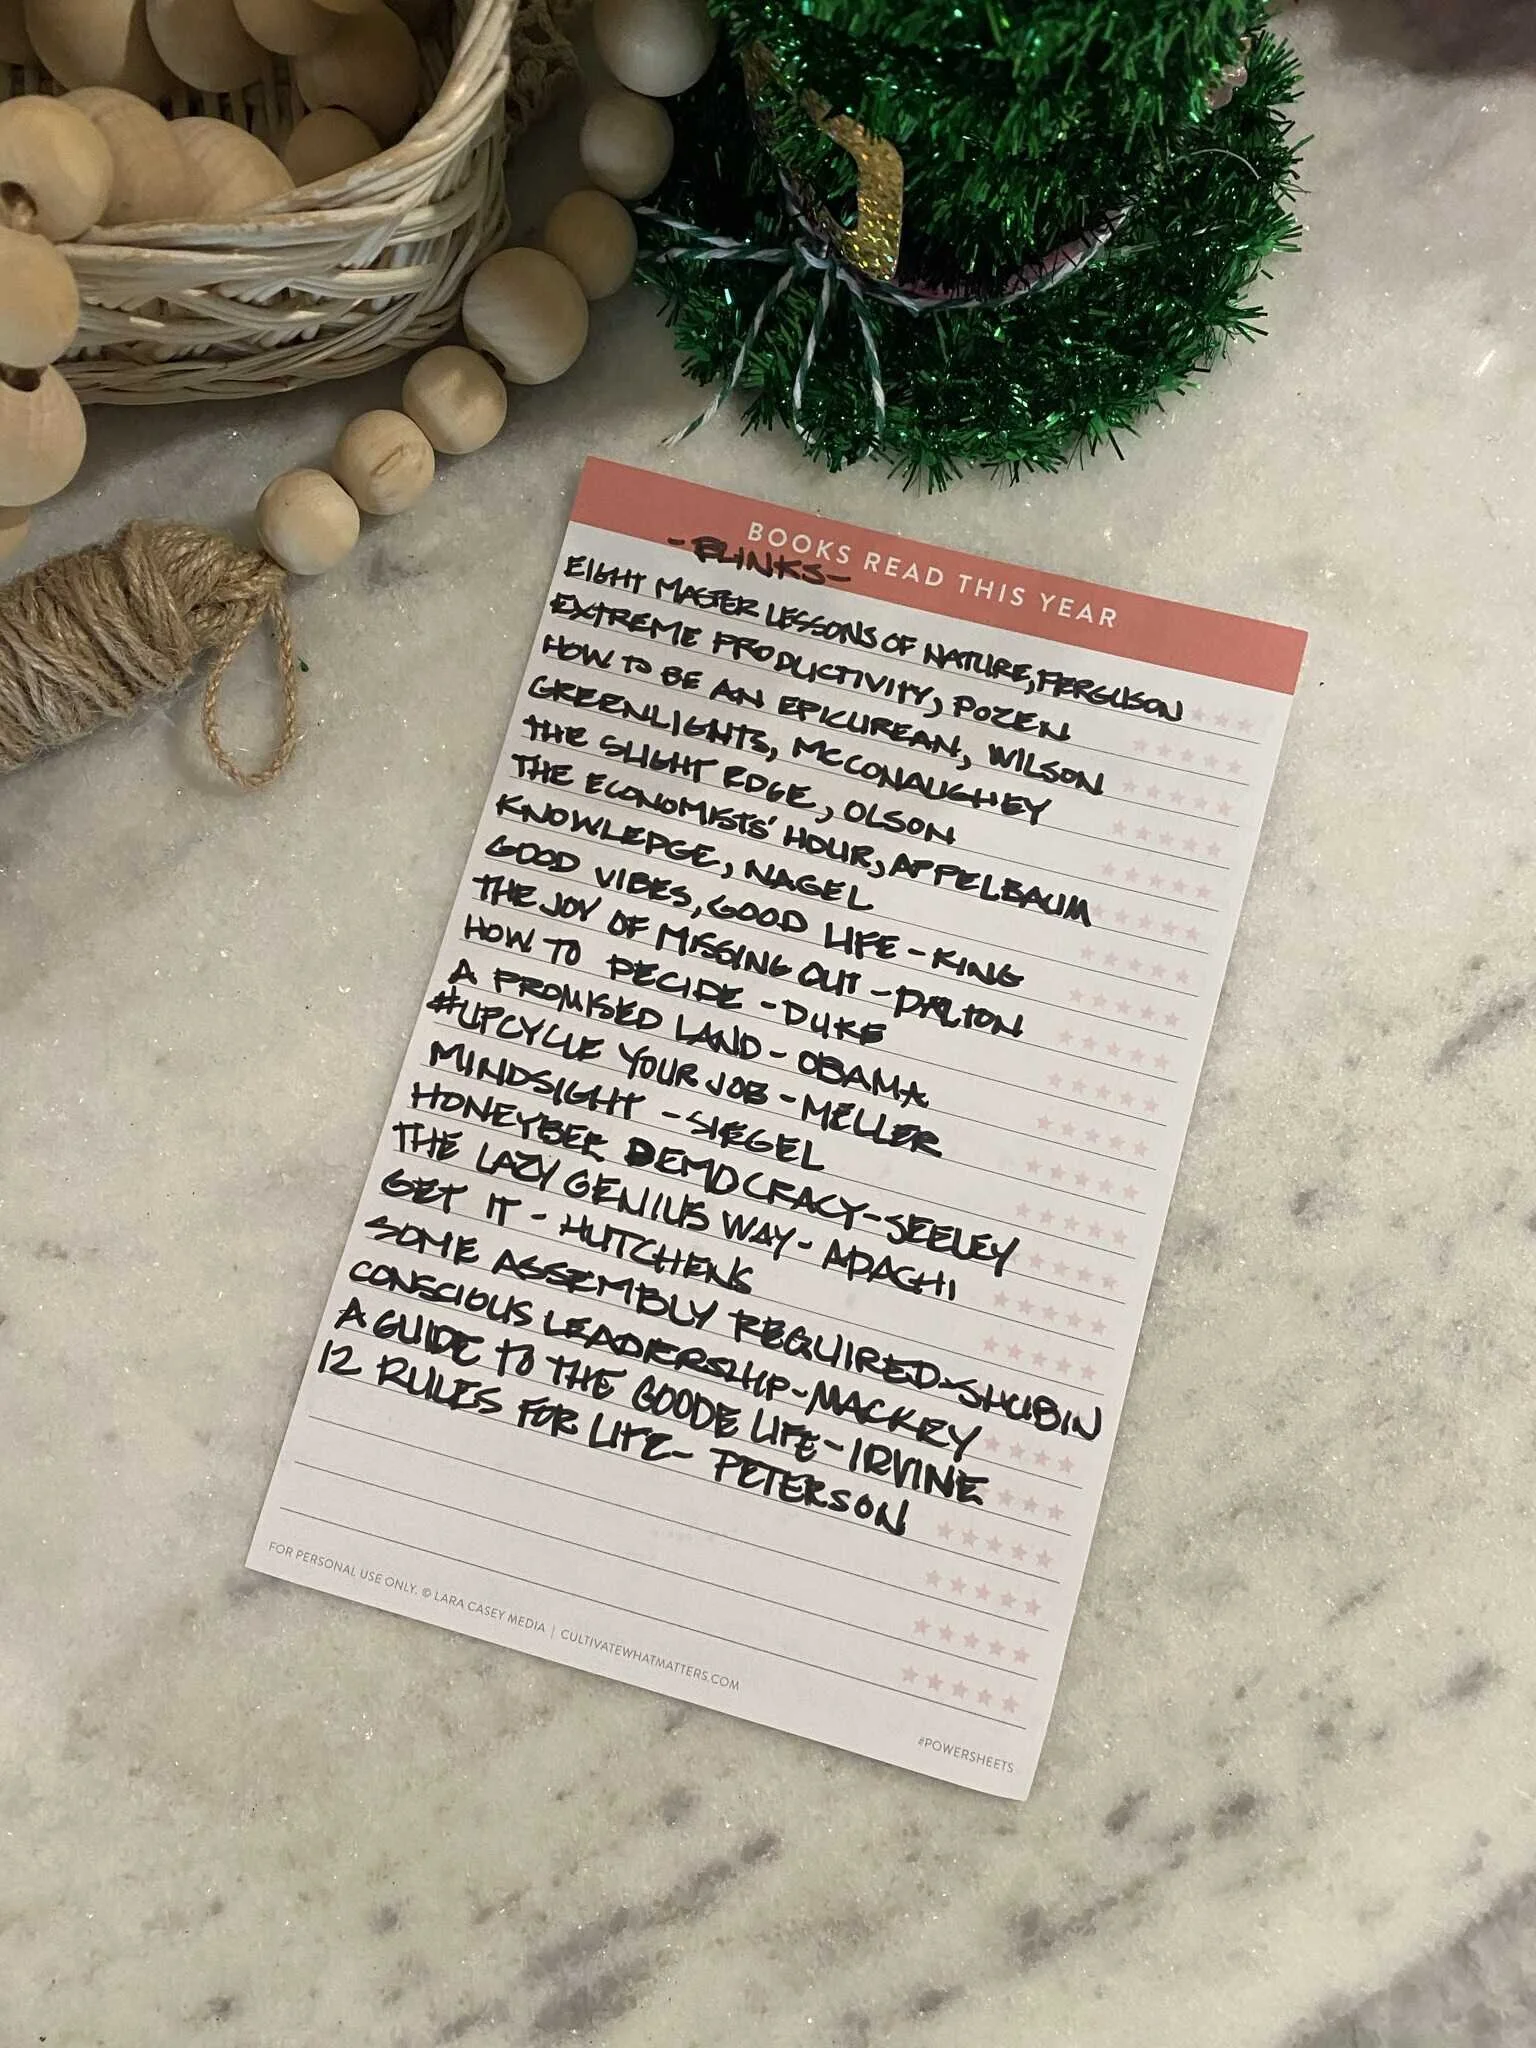 BOOKS READ THIS YEAR
- BLINKS -
EIGHT MASTER LESSONS OF NATURE, FERGUSON
EXTREME PRODUCTIVITY, POZEN
HOW TO BE AN EPICUREAN, WILSON
GREENLIGHTS, MCCONAUGHEY
THE SLIGHT EDGE, OLSON
THE ECONOMISTS' HOUR, APPELBAUM
KNOWLEDGE, NAGEL
GOOD VIBES, GOOD LIFE - KING
THE JOY OF MISSING OUT - DALTON
HOW TO DECIDE - DUKE
A PROMISED LAND - OBAMA
#UPCYCLE YOUR JOB - MELLER
MINDSIGHT - SIEGEL
HONEYBEE DEMOCRACY - SEELEY
THE LAZY GENIUS WAY - ADACHI
GET IT - HUTCHENS
SOME ASSEMBLY REQUIRED - SHUBIN
CONSCIOUS LEADERSHIP - MACKEY
A GUIDE TO THE GOODE LIFE - IRVINE
12 RULES FOR LIFE - PETERSON
FOR PERSONAL USE ONLY. © LARA CASEY MEDIA | CULTIVATEWHATMATTERS.COM
#POWERSHEETS